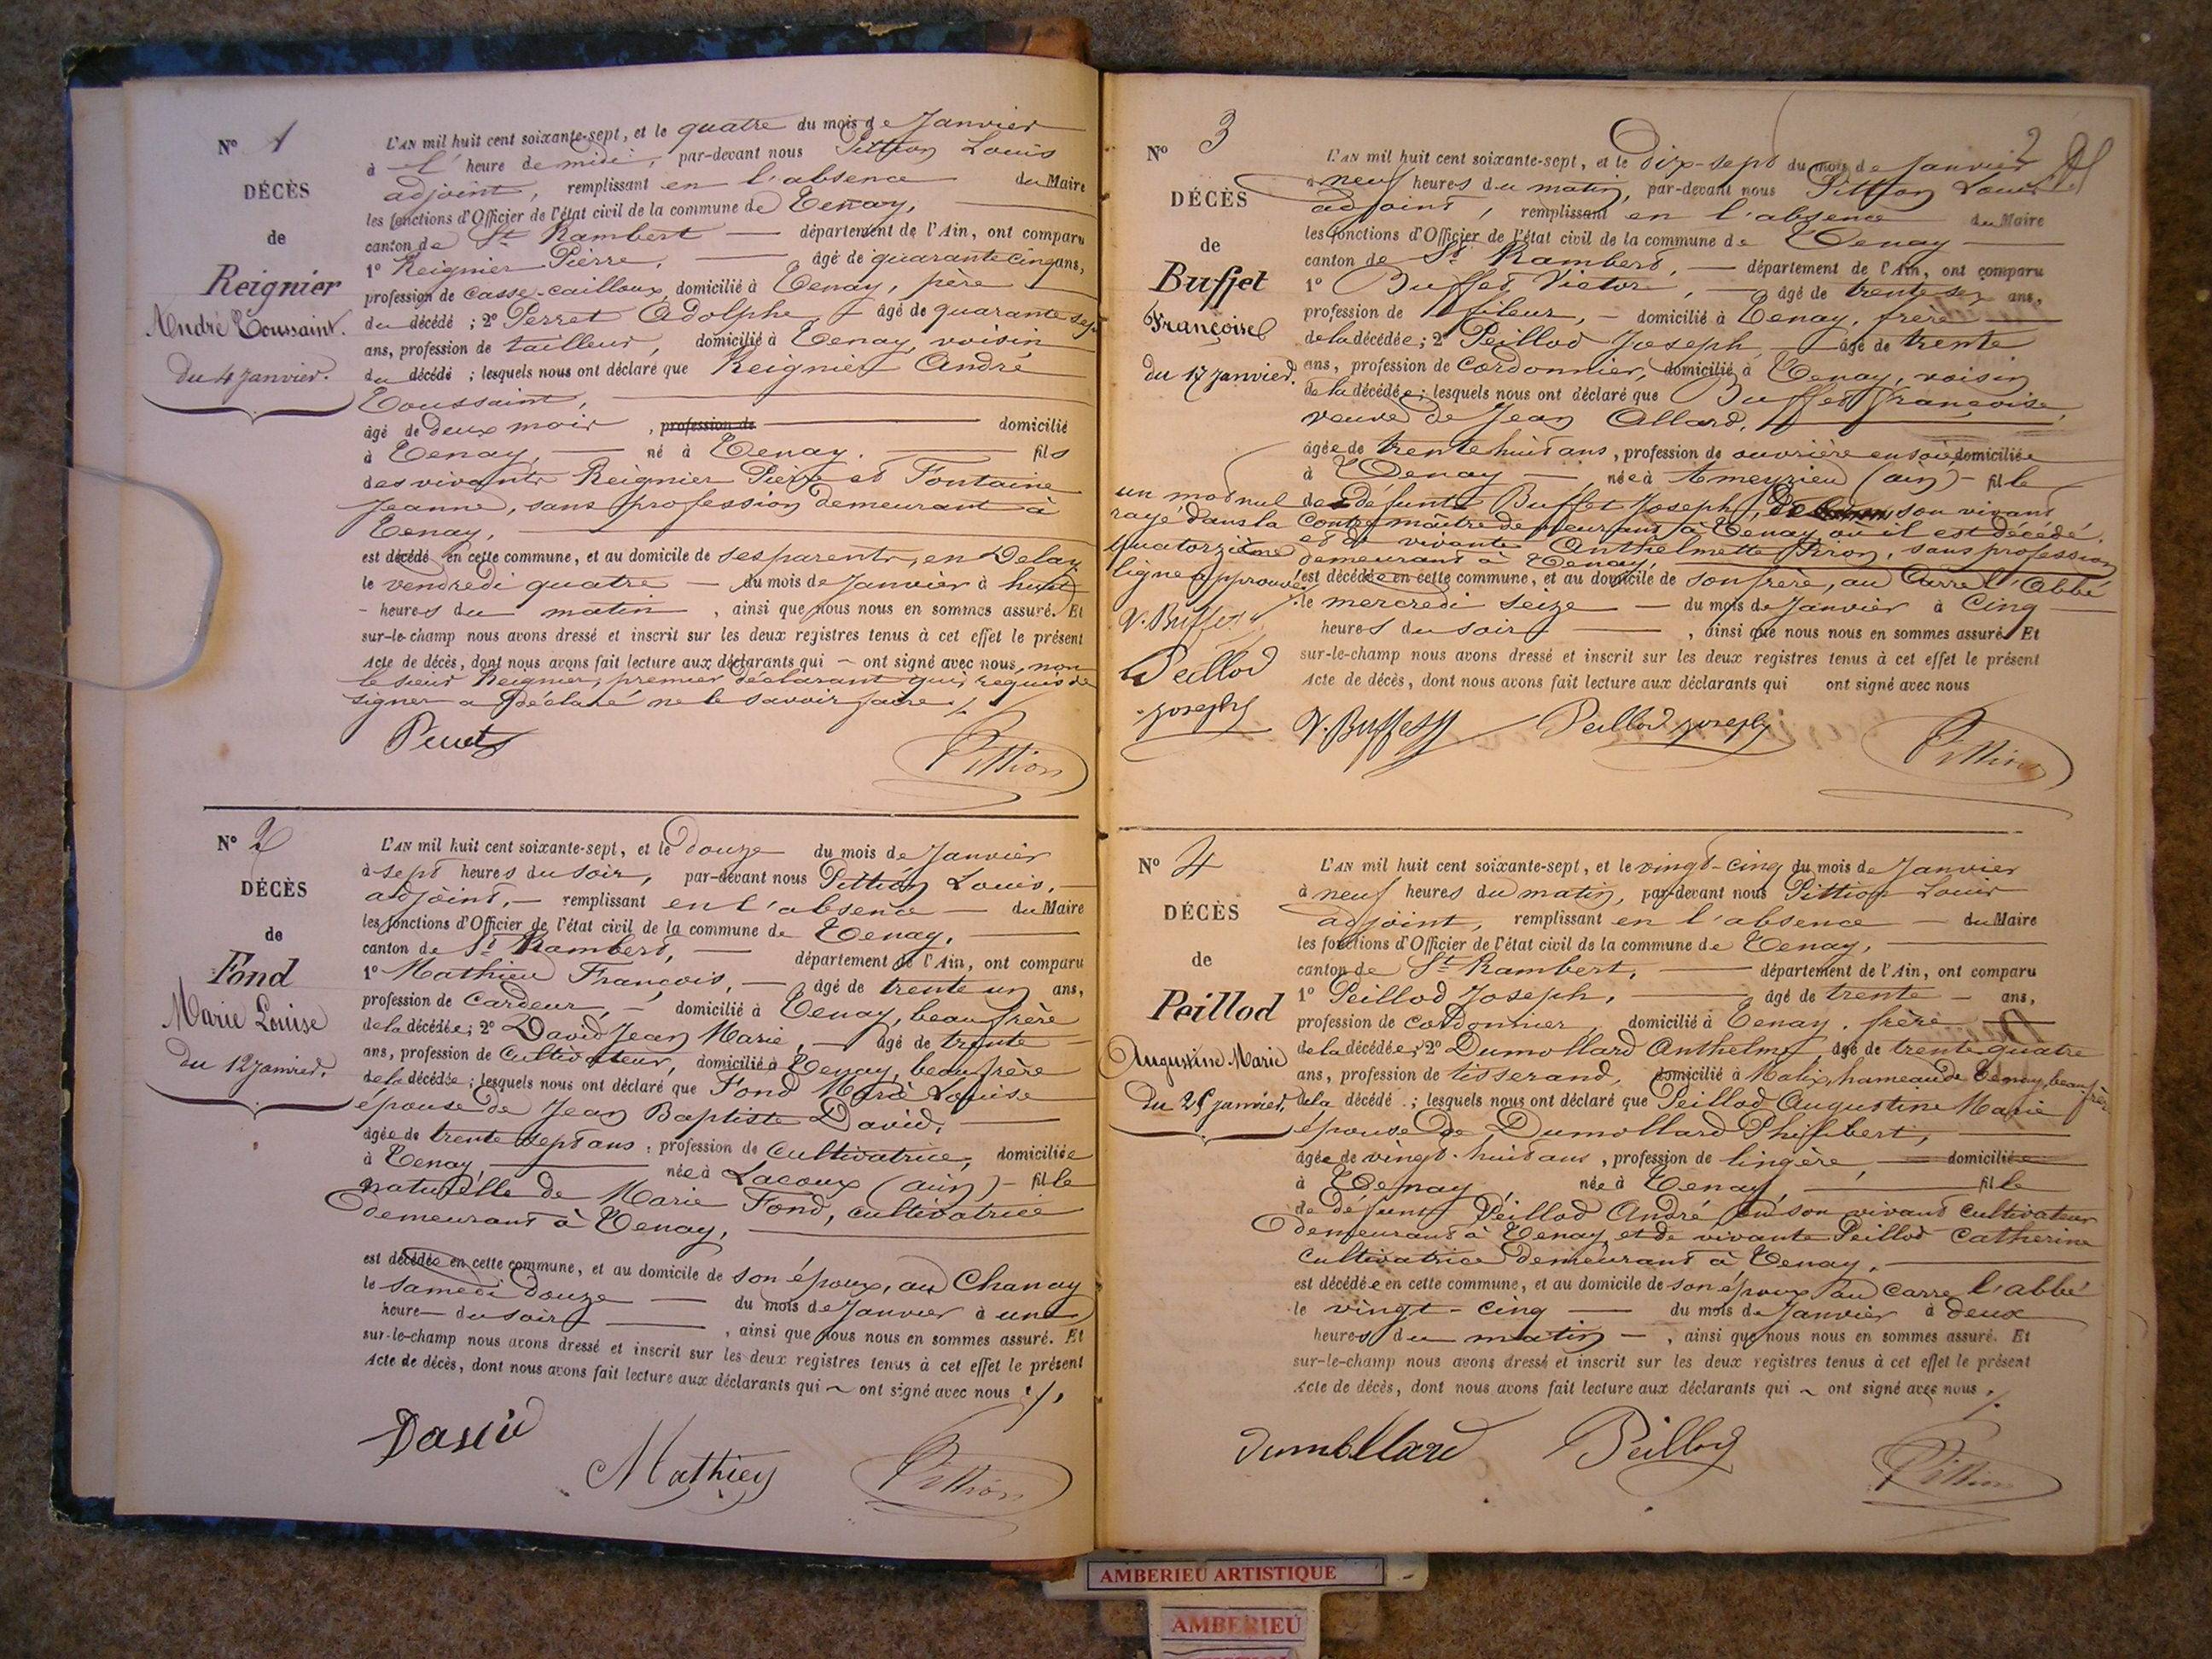 Nº 1
DÉCÈS
de
Reignier
André Toussaint.
du 4 janvier.
L'AN mil huit cent soixante-sept, et le quatre du mois de Janvier
à l' heure de midi, par-devant nous Pittion Louis
adjoint, remplissant en l'absence du Maire
les fonctions d'Officier de l'état civil de la commune de Tenay,
canton de St Rambert — département de l'Ain, ont comparu
1º Reignier Pierre, — âgé de quarante cinq ans,
profession de Casse-cailloux, domicilié à Tenay, père
du décédé ; 2º Perret Adolphe, âgé de quarante sept
ans, profession de tailleur, domicilié à Tenay, voisin
du décédé ; lesquels nous ont déclaré que Reignier André
Toussaint,
âgé de deux mois, profession de — domicilié
à Tenay, — né à Tenay. — fils
des vivants Reignier Pierre et Fontaine
Jeanne, sans profession demeurant à
Tenay,
est décédé en cette commune, et au domicile de ses parents, en Delay
le vendredi quatre — du mois de Janvier à huit
- heures du matin, ainsi que nous nous en sommes assuré. Et
sur-le-champ nous avons dressé et inscrit sur les deux registres tenus à cet effet le présent
Acte de décès, dont nous avons fait lecture aux déclarants qui ~ ont signé avec nous, non
le sieur Reignier, premier déclarant qui, requis de
signer a déclaré ne le savoir faire ./.
Perret
Pittion
Nº 2
DÉCÈS
de
Fond
Marie Louise
du 12 janvier.
L'AN mil huit cent soixante-sept, et le douze du mois de Janvier
à sept heures du soir, par-devant nous Pittion Louis, —
adjoint, — remplissant en l'absence — du Maire
les fonctions d'Officier de l'état civil de la commune de Tenay,
canton de St Rambert, — département de l'Ain, ont comparu
1º Mathieu François, — âgé de trente un ans,
profession de Cardeur, — domicilié à Tenay, beau frère
de la décédée ; 2º David Jean Marie, — âgé de trente —
ans, profession de Cultivateur, domicilié à Tenay, beau frère
de la décédée ; lesquels nous ont déclaré que Fond Marie Louise
épouse de Jean Baptiste David, —
âgée de trente sept ans, profession de Cultivatrice, domiciliée
à Tenay, — née à Lacoux (ain) — fille
naturelle de Marie Fond, cultivatrice
demeurant à Tenay,
est décédée en cette commune, et au domicile de son époux, au Chanay
le samedi douze — du mois de Janvier à une
heure — du soir —, ainsi que nous nous en sommes assuré. Et
sur-le-champ nous avons dressé et inscrit sur les deux registres tenus à cet effet le présent
Acte de décès, dont nous avons fait lecture aux déclarants qui ~ ont signé avec nous ./.
David
Mathieu
Pittion
2
Nº 3
DÉCÈS
de
Buffet
Françoise
du 17 janvier.
L'AN mil huit cent soixante-sept, et le dix-sept du mois de Janvier
à neuf heures du matin, par-devant nous Pittion Louis
adjoint, remplissant en l'absence du Maire
les fonctions d'Officier de l'état civil de la commune de Tenay —
canton de St Rambert, — département de l'Ain, ont comparu
1º Buffet Victor, — âgé de trente six ans,
profession de fileur, — domicilié à Tenay, frère
de la décédée ; 2º Peillod Joseph, — âgé de trente
ans, profession de Cordonnier, domicilié à Tenay, voisin
de la décédée ; lesquels nous ont déclaré que Buffet Françoise,
veuve de Jean Allard,
âgée de trente huit ans, profession de ouvrière en soie domiciliée
à Tenay — née à Ameyzieu (ain) — fille
de défunt Buffet Joseph, son vivant
Contre maître demeurant à Tenay où il est décédé,
et de vivante Anthelmette Piron, sans profession
demeurant à Tenay,
est décédée en cette commune, et au domicile de son frère, au Carre l'Abbé
le mercredi seize — du mois de Janvier à Cinq
heures du soir —, ainsi que nous nous en sommes assuré Et
sur-le-champ nous avons dressé et inscrit sur les deux registres tenus à cet effet le présent
Acte de décès, dont nous avons fait lecture aux déclarants qui ont signé avec nous
un mot nul
rayé dans la
quatorzième
ligne approuvé
V. Buffet
Peillod
joseph
V. Buffet
Peillod joseph
Pittion
Nº 4
DÉCÈS
de
Peillod
Augustine Marie
du 25 janvier.
L'AN mil huit cent soixante-sept, et le vingt-cinq du mois de Janvier
à neuf heures du matin, par-devant nous Pittion Louis
adjoint, remplissant en l'absence — du Maire
les fonctions d'Officier de l'état civil de la commune de Tenay,
canton de St Rambert, — département de l'Ain, ont comparu
1º Peillod Joseph, — âgé de trente — ans,
profession de cordonnier, domicilié à Tenay, frère
de la décédée ; 2º Dumollard Anthelme, âgé de trente quatre
ans, profession de tisserand, domicilié à Malix, hameau de Tenay, beau frère
de la décédé ; lesquels nous ont déclaré que Peillod Augustine Marie
épouse de Dumollard Philibert, —
âgée de vingt-huit ans, profession de lingère, — domiciliée
à Tenay née à Tenay, — fille
de défunt Peillod André, en son vivant cultivateur
demeurant à Tenay, et de vivante Peillod Catherine
Cultivatrice demeurant à Tenay,
est décédée en cette commune, et au domicile de son époux au Carre l'abbé
le vingt-cinq — du mois de Janvier à deux
heures du matin —, ainsi que nous nous en sommes assuré. Et
sur-le-champ nous avons dressé et inscrit sur les deux registres tenus à cet effet le présent
Acte de décès, dont nous avons fait lecture aux déclarants qui ~ ont signé avec nous ./.
dumollard
Peillod
Pittion
AMBERIEU ARTISTIQUE
AMBERIEU